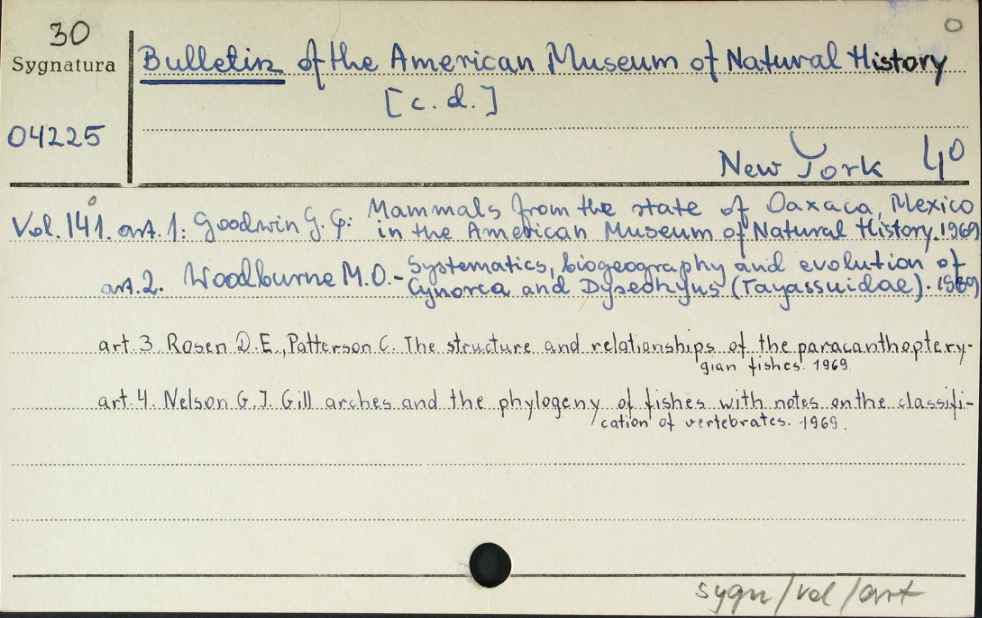 30
Sygnatura
04225
0
Bulletin of the American Museum of Natural History
[c. d.]
New York 4⁰
Vol. 141. art. 1: Goodwin G. G: Mammals from the state of Oaxaca, Mexico
in the American Museum of Natural History. 1969
art. 2. Woodburne M.O. - Systematics, biogeography and evolution of
Cynorca and Dyseohyus (Tayassuidae). 1969
art. 3. Rosen D. E., Patterson C. The structure and relationships of the paracanthoptery-
gian fishes. 1969.
art. 4. Nelson G. J. Gill arches and the phylogeny of fishes with notes on the classifi-
cation of vertebrates. 1969.
sygn/vol/art